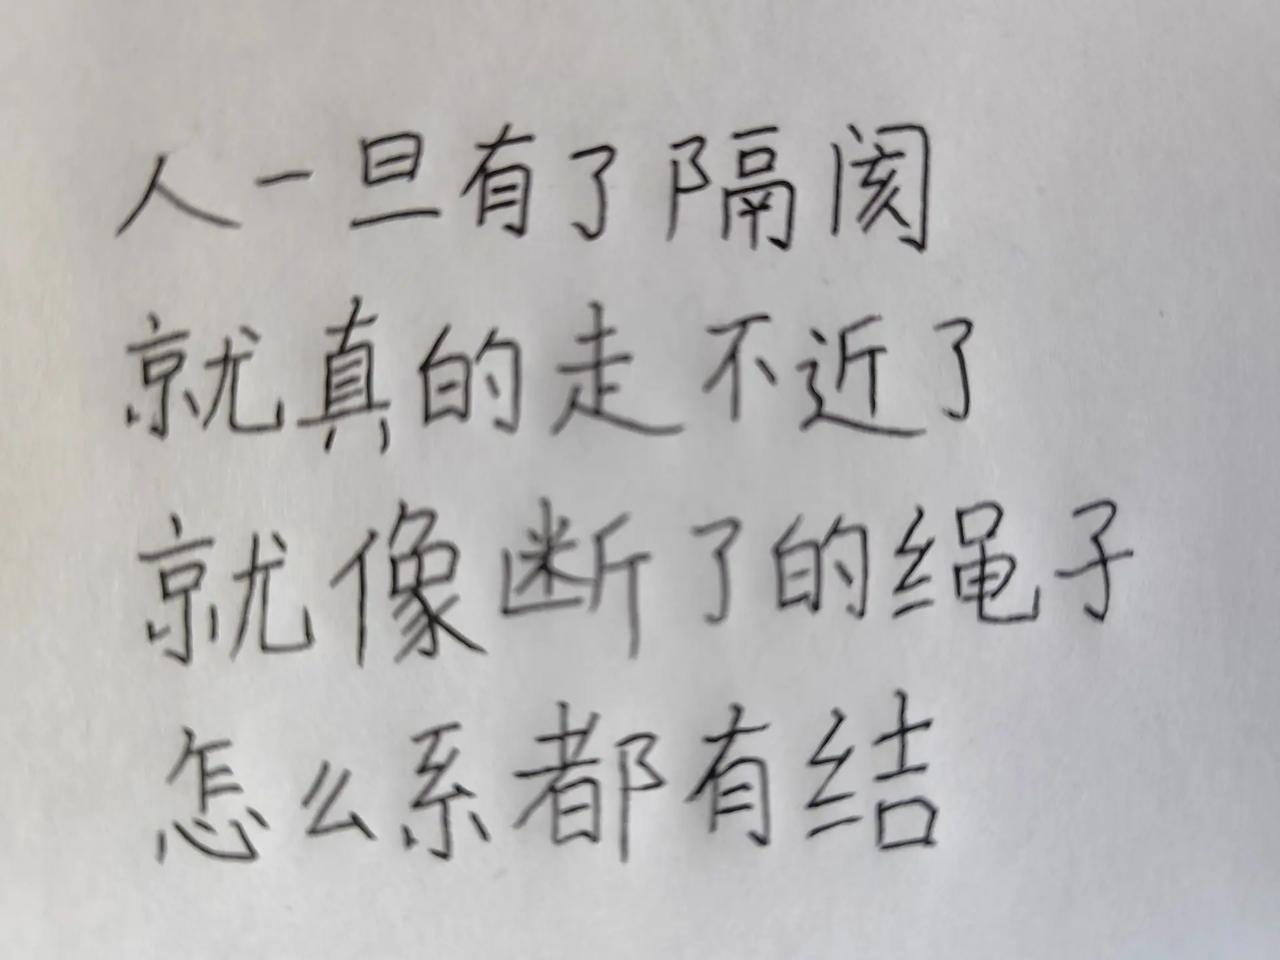 人一旦有了隔阂
就真的走不近了
就像断了的绳子
怎么系都有结